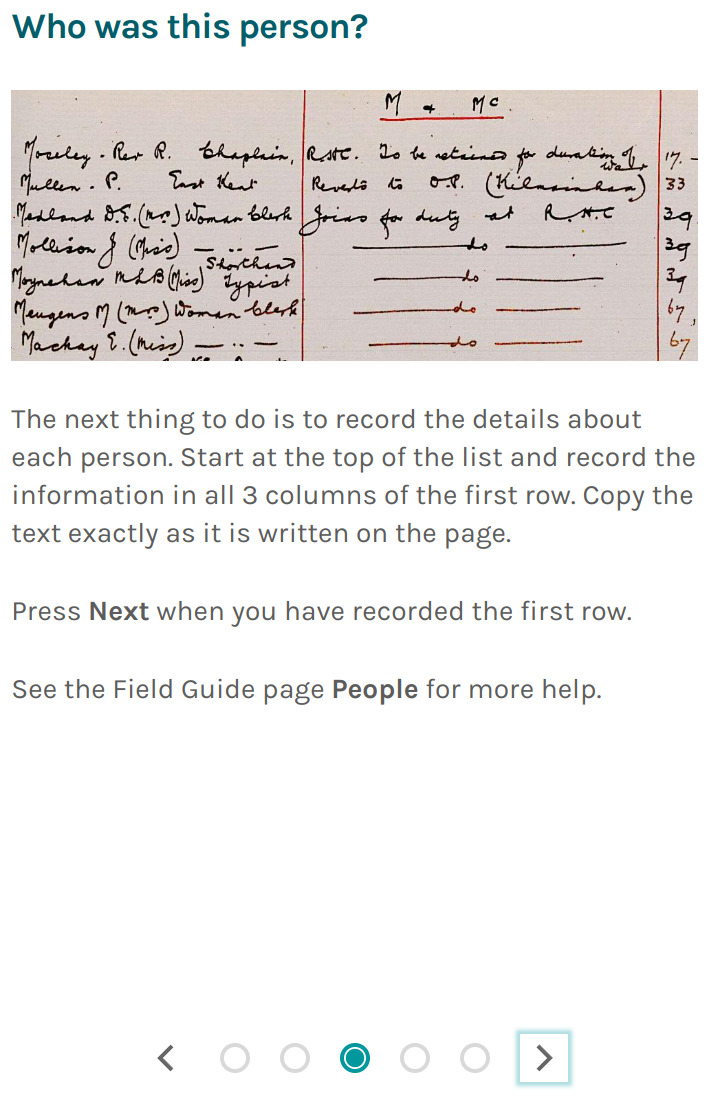 Who was this person?
M & Mc.
Moseley - Rev R. Chaplain, R.H.C. To be retained for duration of war 17. -
Mullen - P. East Kent Reverts to O.P. (Kilmainham) 33
Medland D.E. (Mrs) Woman Clerk Joins for duty at R.H.C 39
Mollison J (Miss) — .. — — do — 39
Moynehan M L B (Miss) Shorthand Typist — do — 39
Meugens M (Mrs) Woman Clerk — do — 67,
Mackay E. (Miss) — .. — — do — 67
The next thing to do is to record the details about
each person. Start at the top of the list and record the
information in all 3 columns of the first row. Copy the
text exactly as it is written on the page.
Press Next when you have recorded the first row.
See the Field Guide page People for more help.